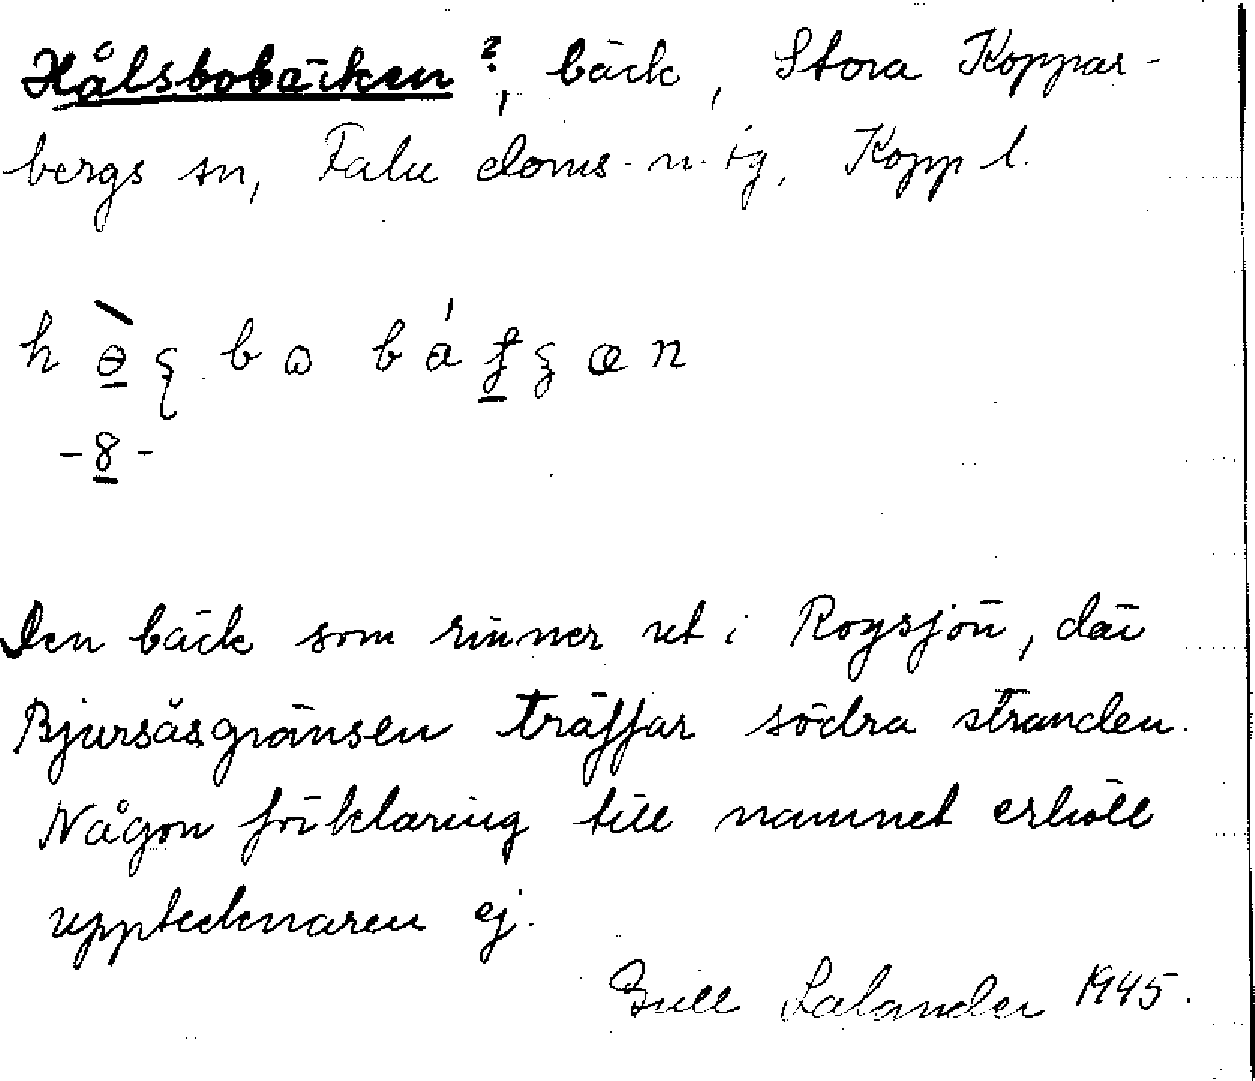 Hålsbobäcken?, bäck, Stora Koppar-
bergs sn, Falu doms. n. tg, Kopp l.
Den bäck som rinner ut i Rogsjön, där
Bjursåsgränsen träffar södra stranden.
Någon förklaring till namnet erhöll
upptecknaren ej.
Gull Lalander 1945.